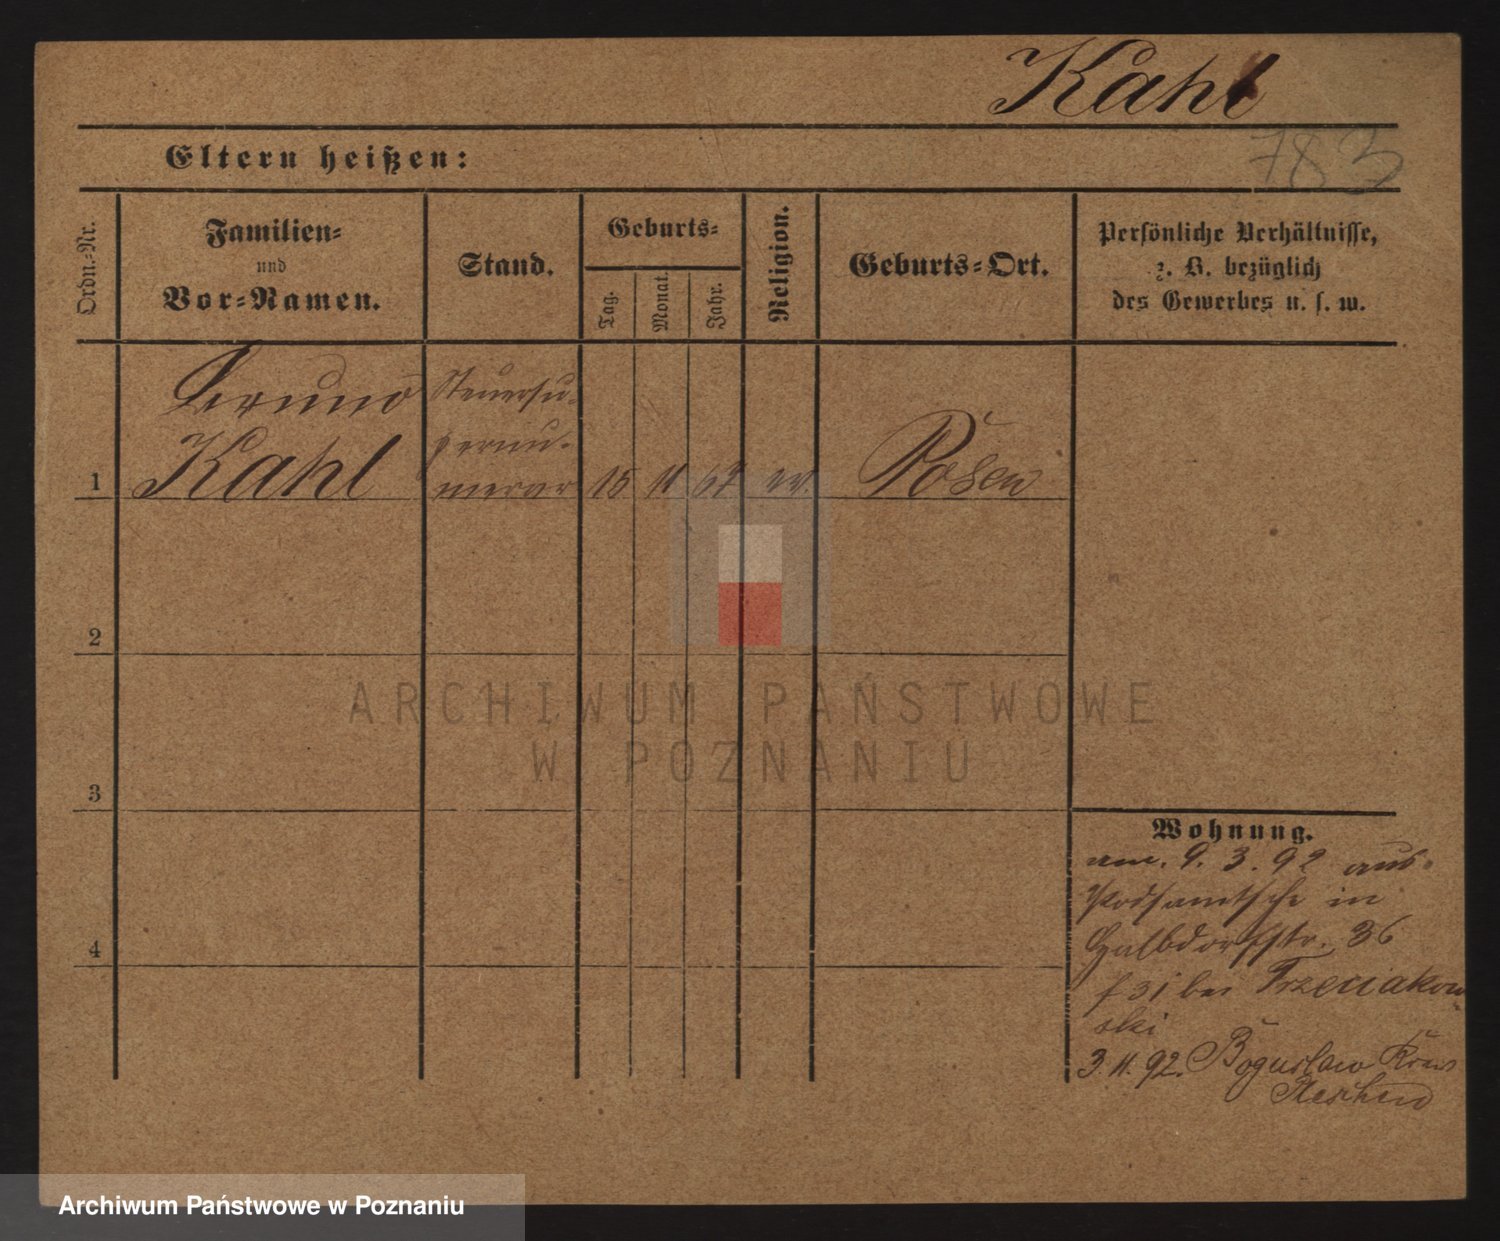 Kahl
783
Eltern heißen:
Ordn.-Nr.
Familien-
und
Vor-Namen.
Stand.
Geburts-
Tag.
Monat.
Jahr.
Religion.
Geburts-Ort.
Persönliche Verhältnisse,
z. B. bezüglich
des Gewerbes u. s. w.
Bruno
Kahl
Steuersu-
pernu-
merar
1
15 11 67 ev. Posen
2
ARCHIWUM PAŃSTWOWE
W POZNANIU
3
Wohnung.
9. 3. 92 aus
in
Halbdorfstr. 36
bei Trzeciakow-
ski
4
3. 11. 92. Boguslaw Kreis
Pleschen
Archiwum Państwowe w Poznaniu